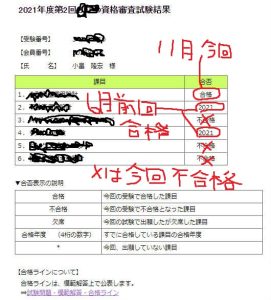 2021年度第2回 資格審査試験結果
【受験番号】
【会員番号】
【氏 名】 小畠 隆宏 様
11月今回
課目 合否
1. 合格
2. 2021
3. 不合格
4. 2021
5. 不合格
6. 不合格
6月前回
合格
Xは今回不合格
▼合否表示の説明
合格 今回の受験で合格した課目
不合格 今回の受験で不合格となった課目
欠席 今回の試験で出願したが欠席した課目
合格年度 (4桁の数字) すでに合格している課目の合格年度
* 今回、出願していない課目
【合格ラインについて】
合格ラインは、模範解答上で公表します。
⇒試験問題・模範解答・合格ライン